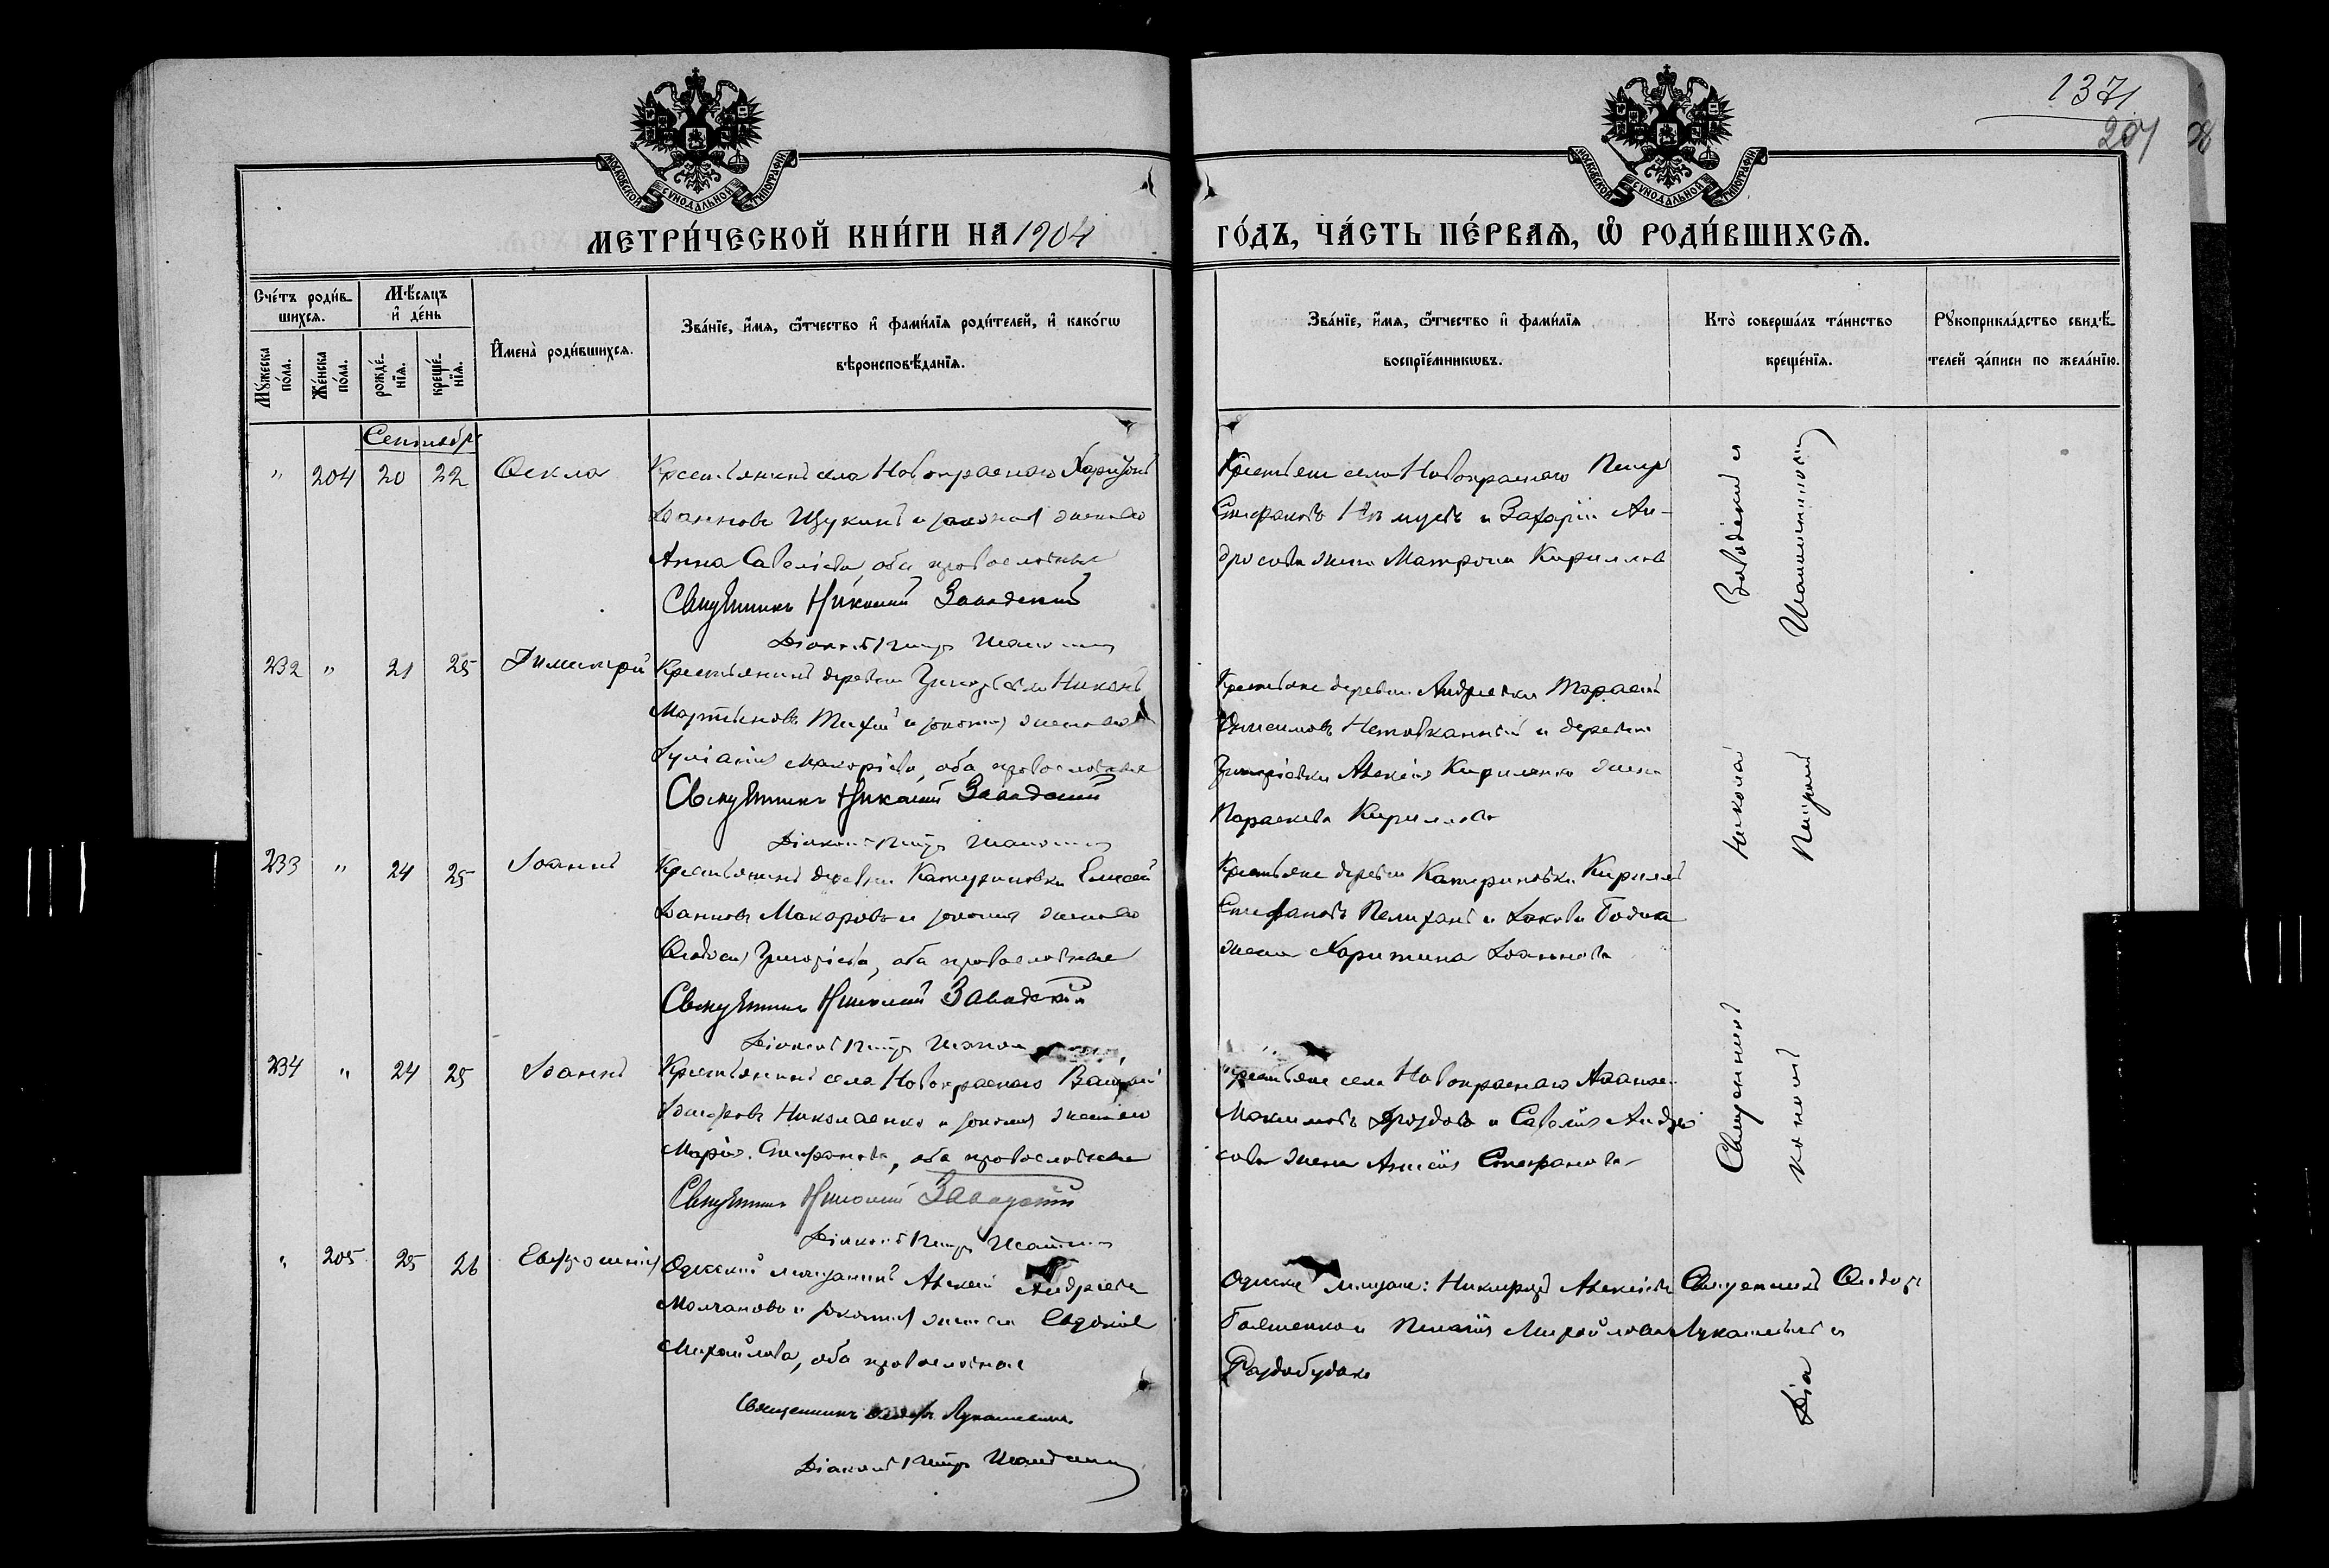 1371
207
МОСКОВСКОЙ СѴНОДАЛЬНОЙ ТИПОГРАФІИ
МОСКОВСКОЙ СѴНОДАЛЬНОЙ ТИПОГРАФІИ
МЕТРИ́ЧЕСКОЙ КНИ́ГИ НА 1904
ГО́ДЪ, ЧА́СТЬ ПЕ́РВАѦ, Ѡ҆ РОДИ́ВШИХСѦ.
Сче́тъ роди́в-
шихсѧ.
Мꙋ́жеска по́ла.
Же́нска по́ла.
Мѣ́сѧцъ
и҆ де́нь
рожде́-
нїѧ.
креще́-
нїѧ.
И҆мена̀ роди́вшихсѧ.
Зва́нїе, и҆́мѧ, ѻ҆́тчество и҆ фами́лїѧ роди́телей, и҆ како́гѡ
вѣроисповѣ́данїѧ.
Зва́нїе, и҆́мѧ, ѻ҆́тчество и҆ фами́лїѧ
воспрїе́мникѡвъ.
Кто̀ соверша́лъ та́инство
креще́нїѧ.
Рꙋкоприкла́дство свидѣ́-
телей за́писи по жела́нїю.
Сентябрь
" 204 20 22 Ѳекла
Крестьянинъ села Новокраснаго Харитонъ
Іоанновъ Щукинъ и законная жена его
Анна Савеліева оба православные
Священникъ Николай Завадскій
Діаконъ Петръ
Крестьяне села Новокраснаго Петръ
Стефановъ и Захарія Ан-
дросова жена Матрона Кириллова
232 " 21 25 Димитрій
Крестьянинъ деревни Григорьевки Никонъ
Мартиновъ Тихій и законная жена его
Іуліанія Макаріева, оба православные
Священникъ Николай Завадскій
Діаконъ Петръ
Крестьяне деревни Андреевки Тарасій
Онисимовъ и деревни
Григоріевки Алексія Кириленко жена
Параскева Кириллова
233 " 24 25 Іоаннъ
Крестьянинъ деревни Катериновки Елисей
Іоанновъ Макаровъ и законная жена его
Ѳеодосія Григоріева, оба православные
Священникъ Николай Завадскій
Діаконъ Петръ
Крестьяне деревни Катериновки Кириллъ
Стефановъ Пелиханъ и Іакова Бодина
жена Харитина Іоаннова
234 " 24 25 Іоаннъ
Крестьянинъ села Новокраснаго
Николаенко и законная жена его
Марія Стефанова, оба православные
Священникъ Николай Завадскій
Діаконъ Петръ
Крестьяне села Новокраснаго
Максимовъ Дроздовъ и Савелія Андро
сова жена Анисія Стефанова
" 205 25 26 Евфросинія
Одесскій мѣщанинъ Алексій Андреевъ
Молчановъ и законная жена его Евдокія
Михайлова, оба православные
Священникъ Ѳеодоръ Лукашевичъ
Діаконъ Петръ
Одесскіе мѣщане: Никифоръ Алексіевъ
и Пелагія Михайлова
Раздобудько
Священникъ Ѳеодоръ
Лукашевичъ и
Діа
Священникъ Николай Завадскій и
конъ Петръ